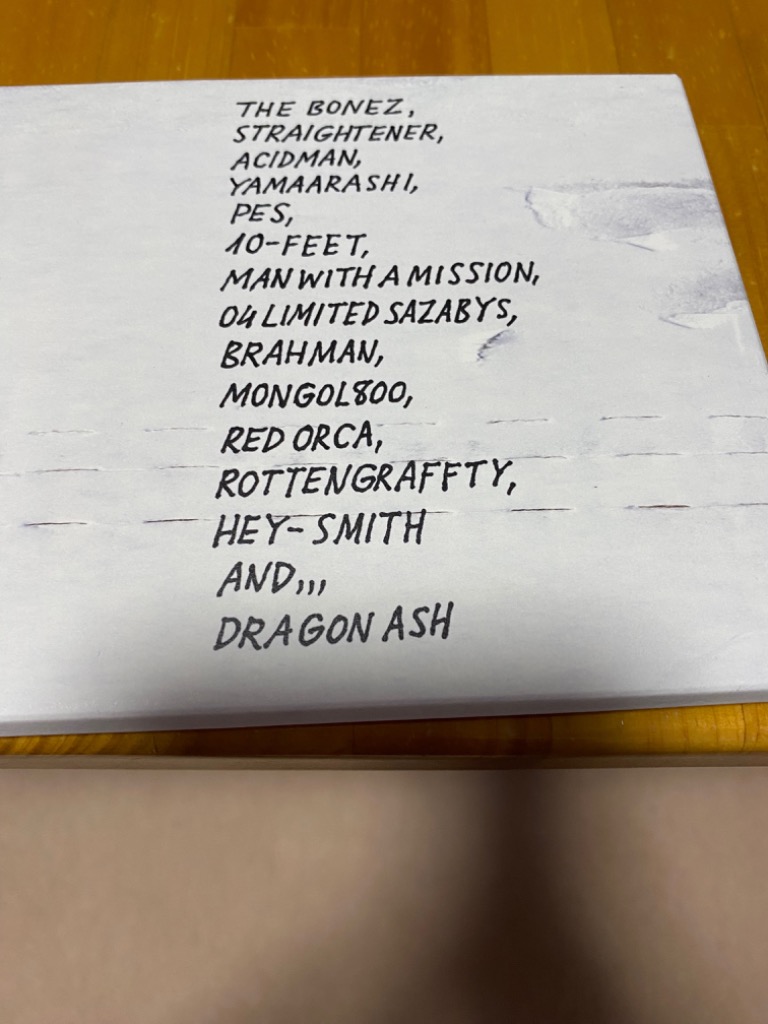 THE BONEZ,
STRAIGHTENER,
ACIDMAN,
YAMAARASHI,
PES,
10-FEET,
MAN WITH A MISSION,
04 LIMITED SAZABYS,
BRAHMAN,
MONGOL800,
RED ORCA,
ROTTENGRAFFTY,
HEY-SMITH
AND,,,
DRAGON ASH